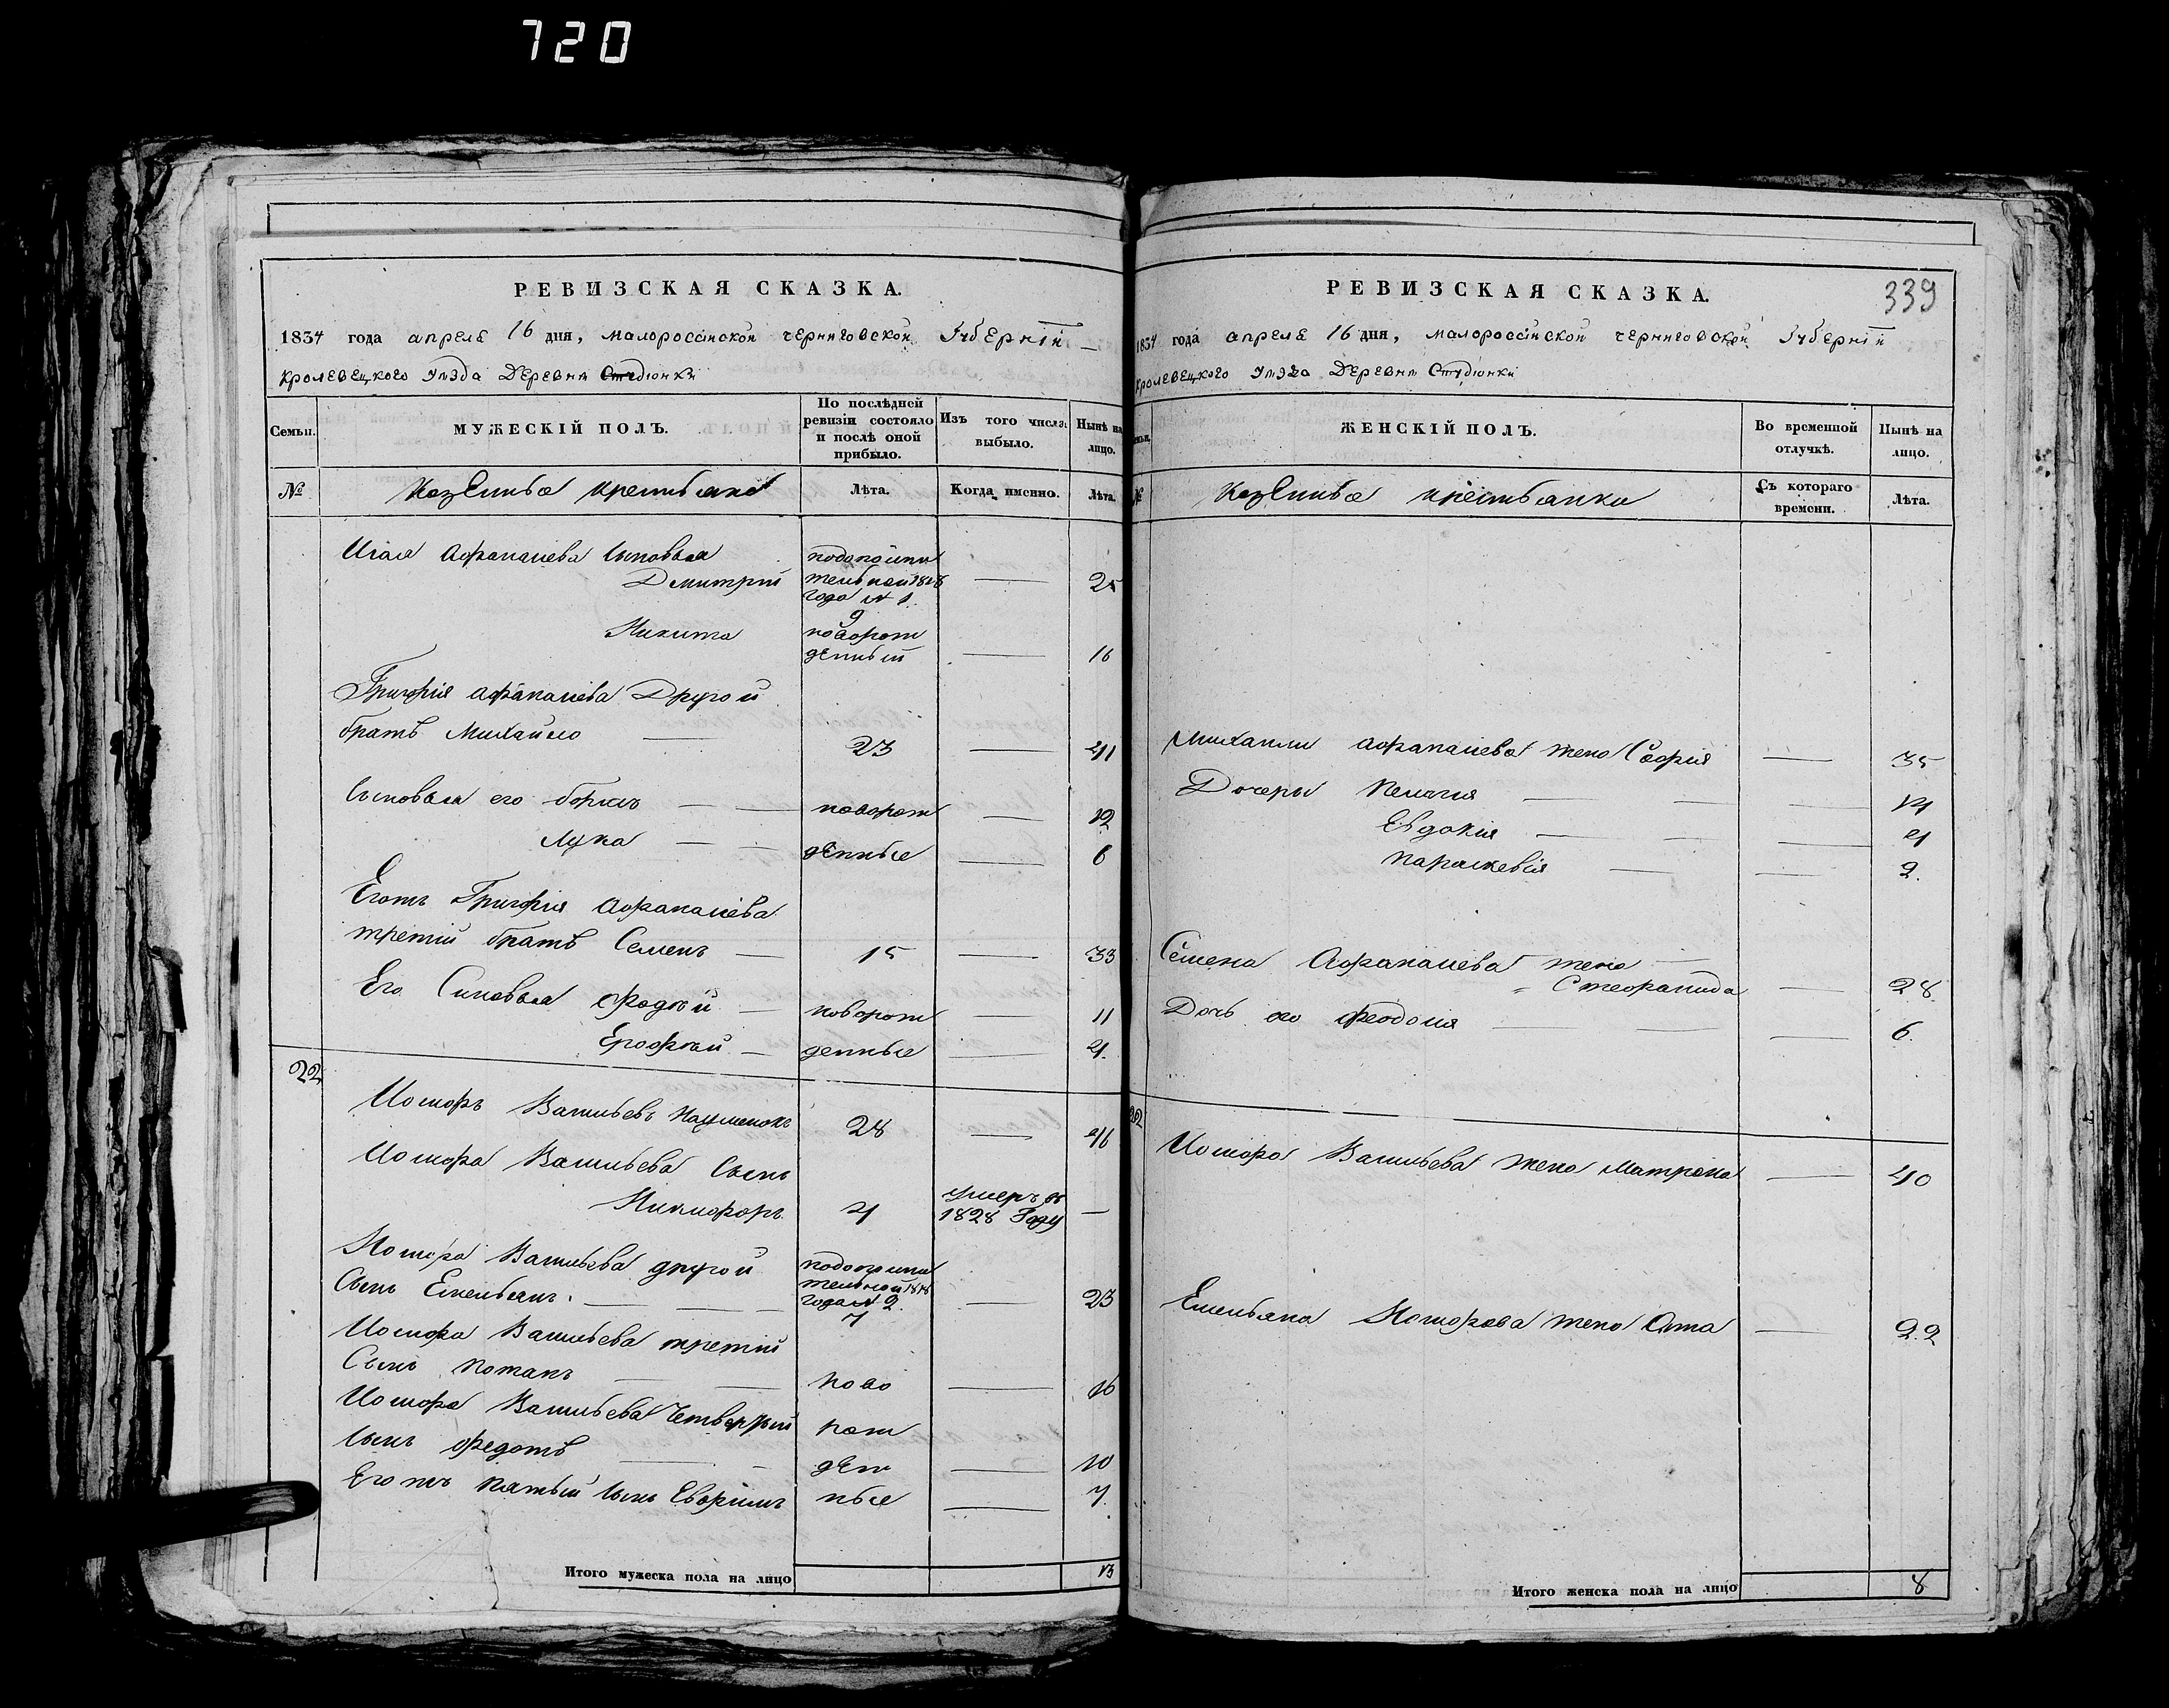 720
РЕВИЗСКАЯ СКАЗКА.
1834 года апреля 16 дня, малоросійской черниговской Губерніи
кролевецкого уезда деревни Студіонки
Семьи.
МУЖЕСКІЙ ПОЛЪ.
По послѣдней ревизіи состояло и послѣ оной прибыло.
Изъ того числа выбыло.
Нынѣ на лицо.
№
Казенные крестьяне
Лѣта.
Когда именно.
Лѣта.
Исая Афанасиева сыновья
Дмитрий
подополни
тельной 1828
года № 1
9
25
Никита
новорож
денный
16
Григория афанасиева Другой
братъ Михайло 23 41
Сыновья его борисъ новорож 12
Лука денные 6
Егожъ Григория Афанасиева
третий братъ Семенъ 15 33
Его Синовья фадѣй новорож 11
Ерофѣй денные 4.
22
Васильевъ Науменокъ 28 46
Васильева Сынъ
Никифоръ 4 умеръ въ
1828 Году
Васильева другой
Сынъ Емельянъ.
подополни
тельной 1828
года № 2.
7
23
Васильева третий
Сынъ Потапъ ново 16
Васильева Четвертый рож
сынъ федотъ ден 10
Егожъ пятый сынъ ные 7.
Итого мужеска пола на лицо 13
339
РЕВИЗСКАЯ СКАЗКА.
1834 года апреля 16 дня, малоросійской черниговской Губерніи
кролевецкого уезда деревни Студіонки
ЖЕНСКІЙ ПОЛЪ.
Во временной отлучкѣ.
Нынѣ на лицо.
№
Казенные крестьянки
Съ котораго времени.
Лѣта.
Михаили афанасиева жена София 35
Дочеры 14
Евдокия 4
параскевія 2.
Семена Афанасиева жена
Стефанида 28
Дочь его феодосия 6.
22
Васильева жена Матрона 40
Емельяна жена Анна 22
Итого женска пола на лицо 8